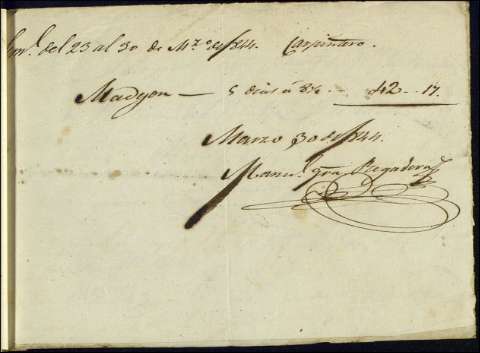 del 23 al 30 de Mzo de 1844. Carpintero.
Madejon — 5 dias a 8½. 42.. 17.
Marzo 30 de 1844.
Manl. Regadera